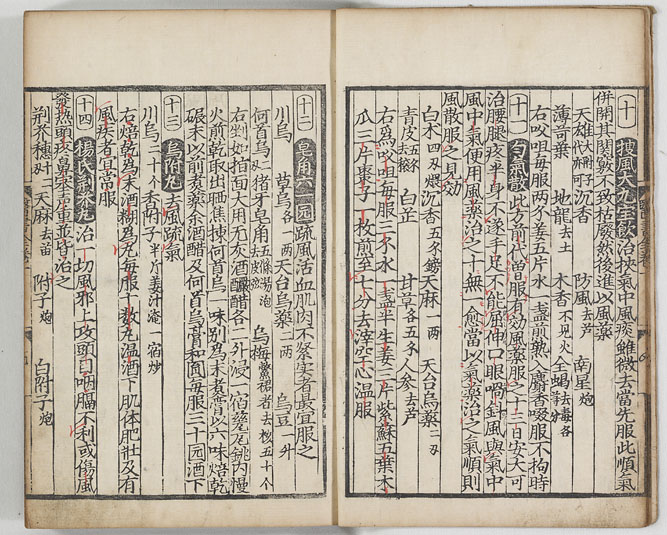 併開其關竅不致枯廢然後進以風藥
十 搜風大九宝飲治挾氣中風痰雖微去當先服此順氣
天雄 沉香 防風去芦 南星炮
薄荷葉 地龍去土 木香不見火 全蝎去毒各等分
右㕮咀每服两个姜五片水一盞煎熟入麝香啜服不拘時
十一 匀氣散此方前代曽服有効風藥服之十二日安大可
治腰腿疼半身不遂手足不能屈伸口眼喎斜風與氣中
風中氣便用風藥治之十無一愈當以氣藥治之氣順則
風散服之見効
白木四刄煨 沉香五个鎊 天麻一两 天台烏藥二刄
青皮去穰五个 白芷 甘草各五个 人参五个去芦
右為㕮咀每服三个水一盞半生姜三片紫蘇五葉木
瓜三片棗子一枚煎至七分去滓空心温服
十二 皂角六一园疏風活血肌肉不榮实者最宜服之
川烏 草烏各一两 天台烏藥二两 烏豆一升
何首烏一刄 猪牙皂角五條湯泡去皮 烏梅去核五十个
右剉如指面大用无灰酒釅醋各一升浸一宿瓷瓦銚内慢
火煎乾取出晒焦揀何首烏一味別為末者膏以六味焙乾
碾末以前煮藥余酒醋及何首烏膏和圓每服三十园酒下
十三 烏附丸去風疏氣
川烏二十个 香附子半斤姜汁淹一宿炒
右焙乾為末酒糊為丸每服十数丸温酒下肌体肥壮及有
風疾者宜常服
十四 楊氏荆芥丸治一切風邪上攻頭目咽膈不利或傷風
發熱頭疼鼻塞声重並皆治之
荆芥穗 天麻去苗 附子炮 白附子炮